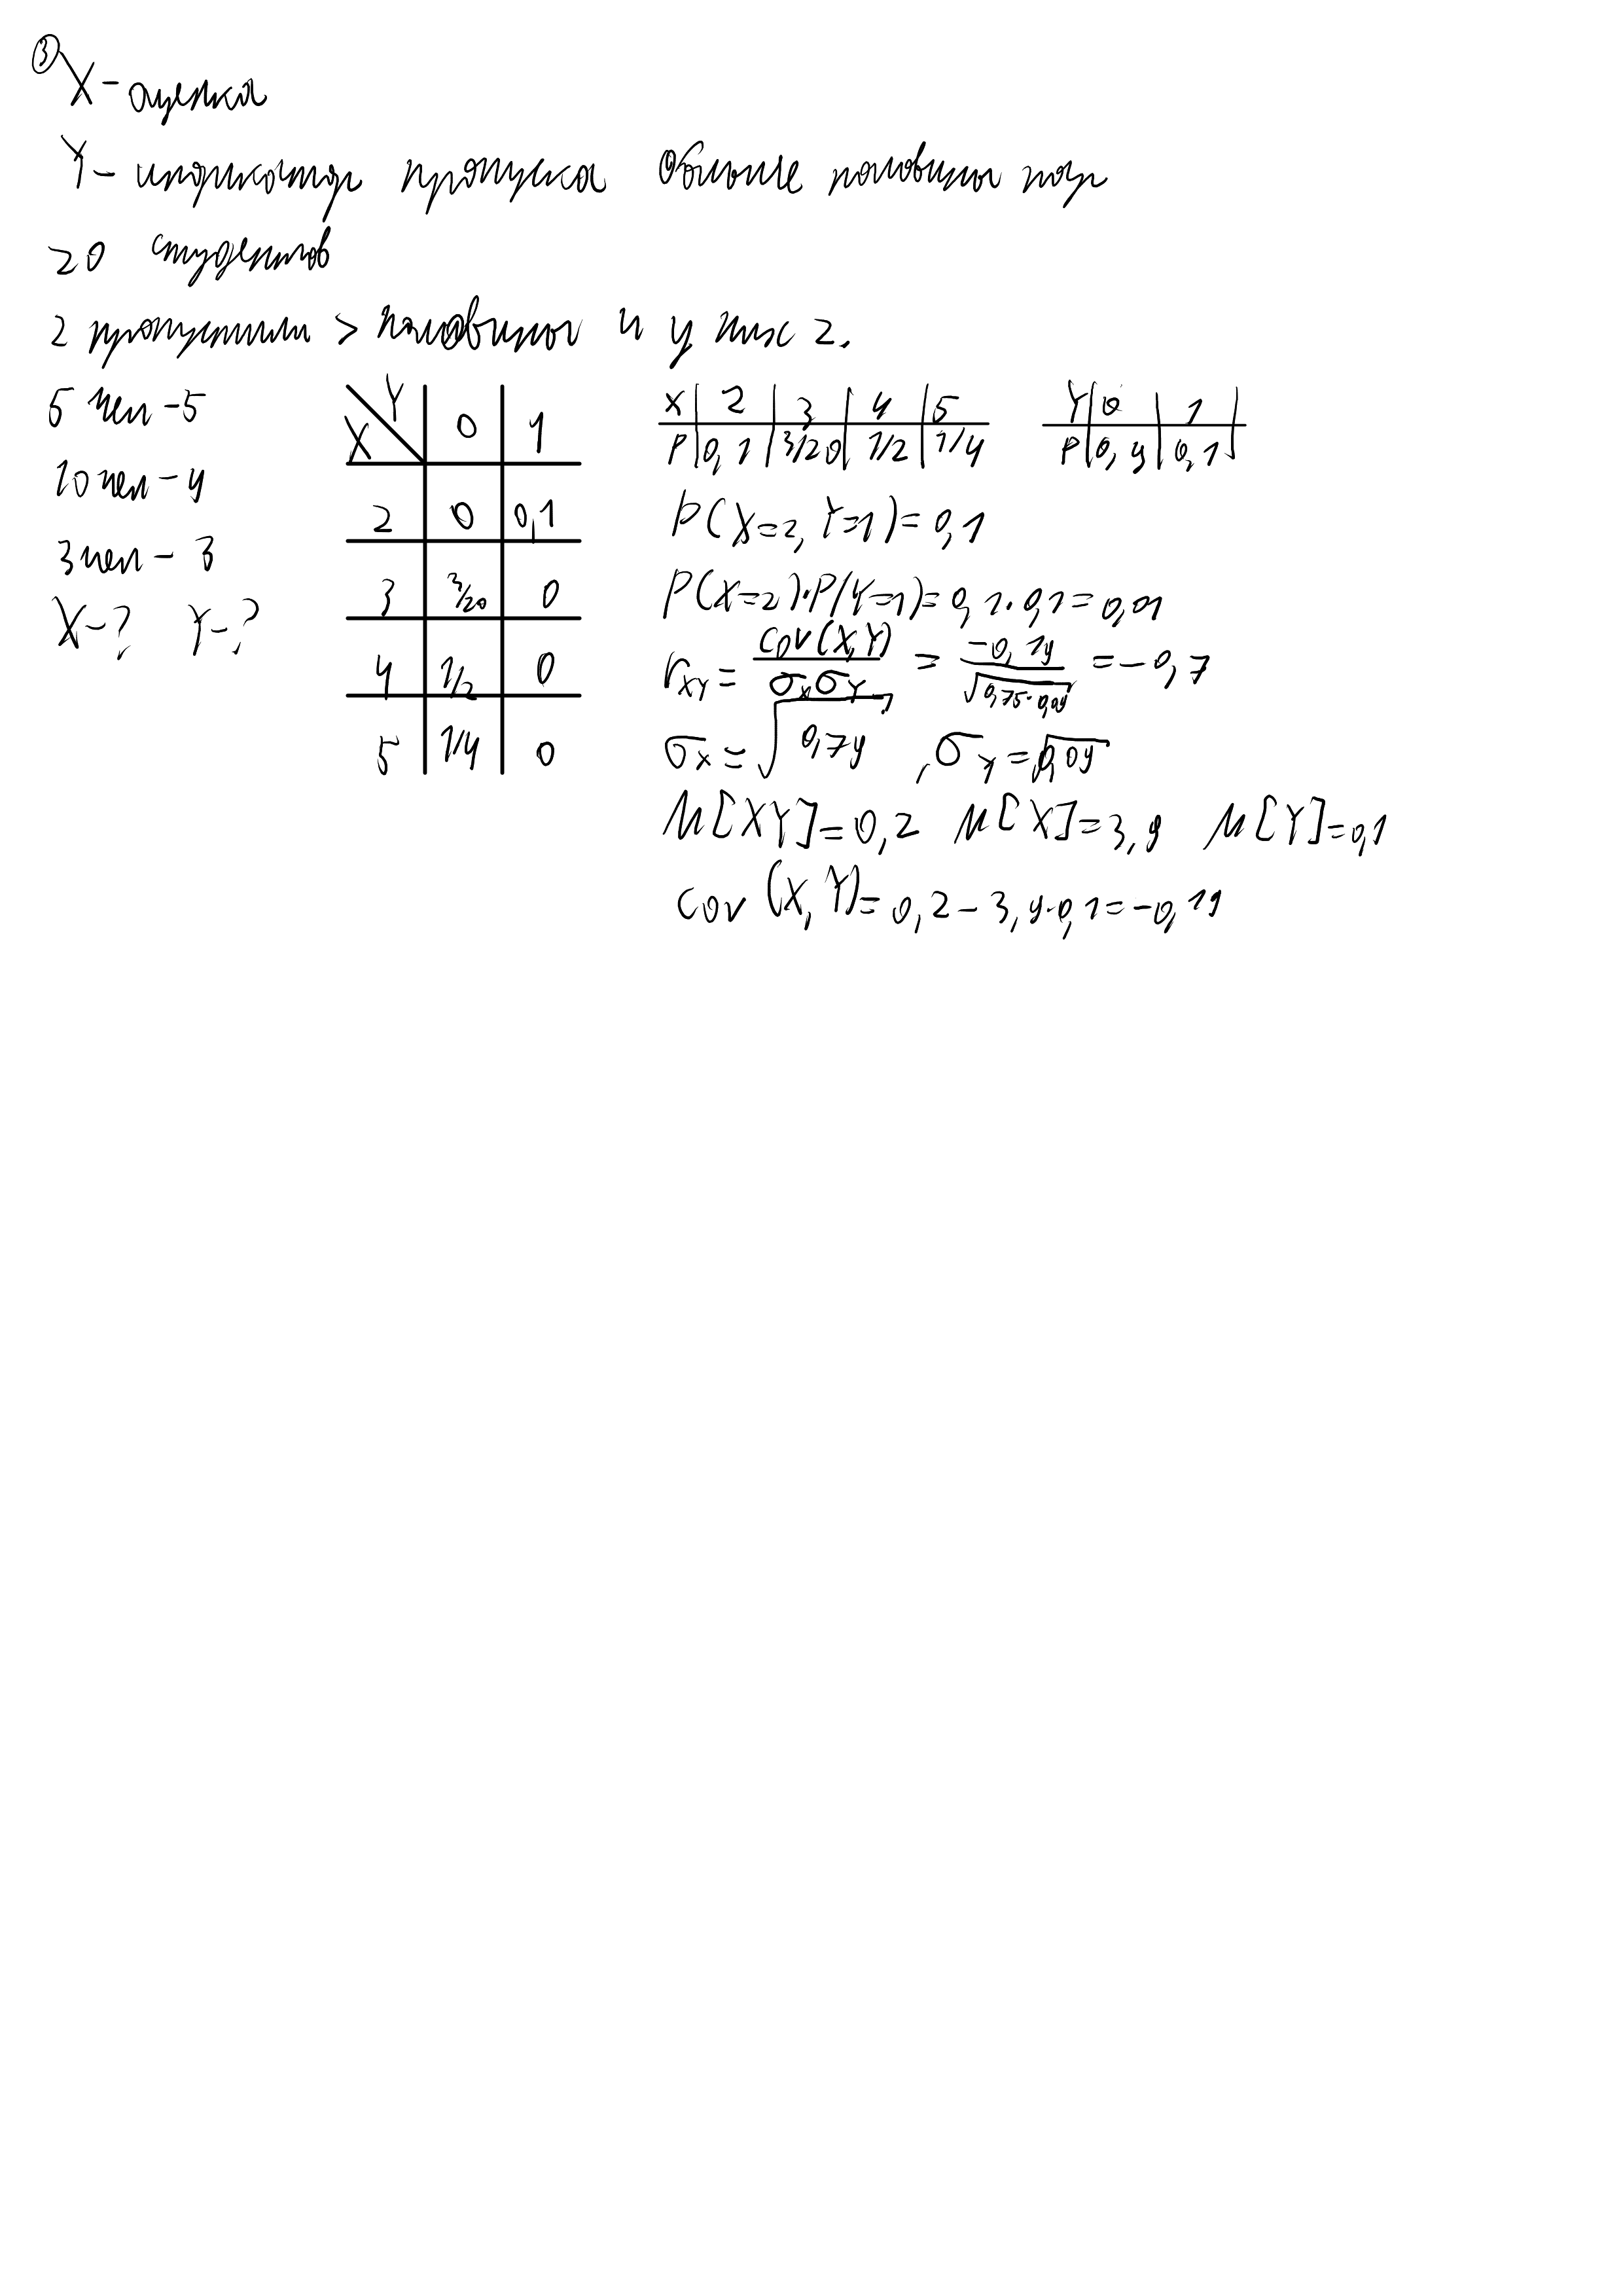 ③ X - оценка
Y - индикатор пропуска больше половины пар
20 студентов
2 пропустили > половины и у них 2.
5 чел - 5
10 чел - 4
3 чел - 3
X - ? Y - ?
X Y 0 1
2 0 0,1
3 3/20 0
4 1/2 0
5 1/4 0
X 2 3 4 5
P 0,1 3/20 1/2 1/4
Y 0 1
P 0,9 0,1
P(X=2, Y=1)=0,1
P(X=2)·P(Y=1)=0,1·0,1=0,01
r_XY = cov(X,Y) / σ_x σ_Y = -0,19 / √0,75·0,09 = -0,7
σ_x = √0,79 , σ_Y = √0,09
M[XY]=0,2 M[X]=3,9 M[Y]=0,1
cov (X,Y)= 0,2-3,9·0,1=-0,19